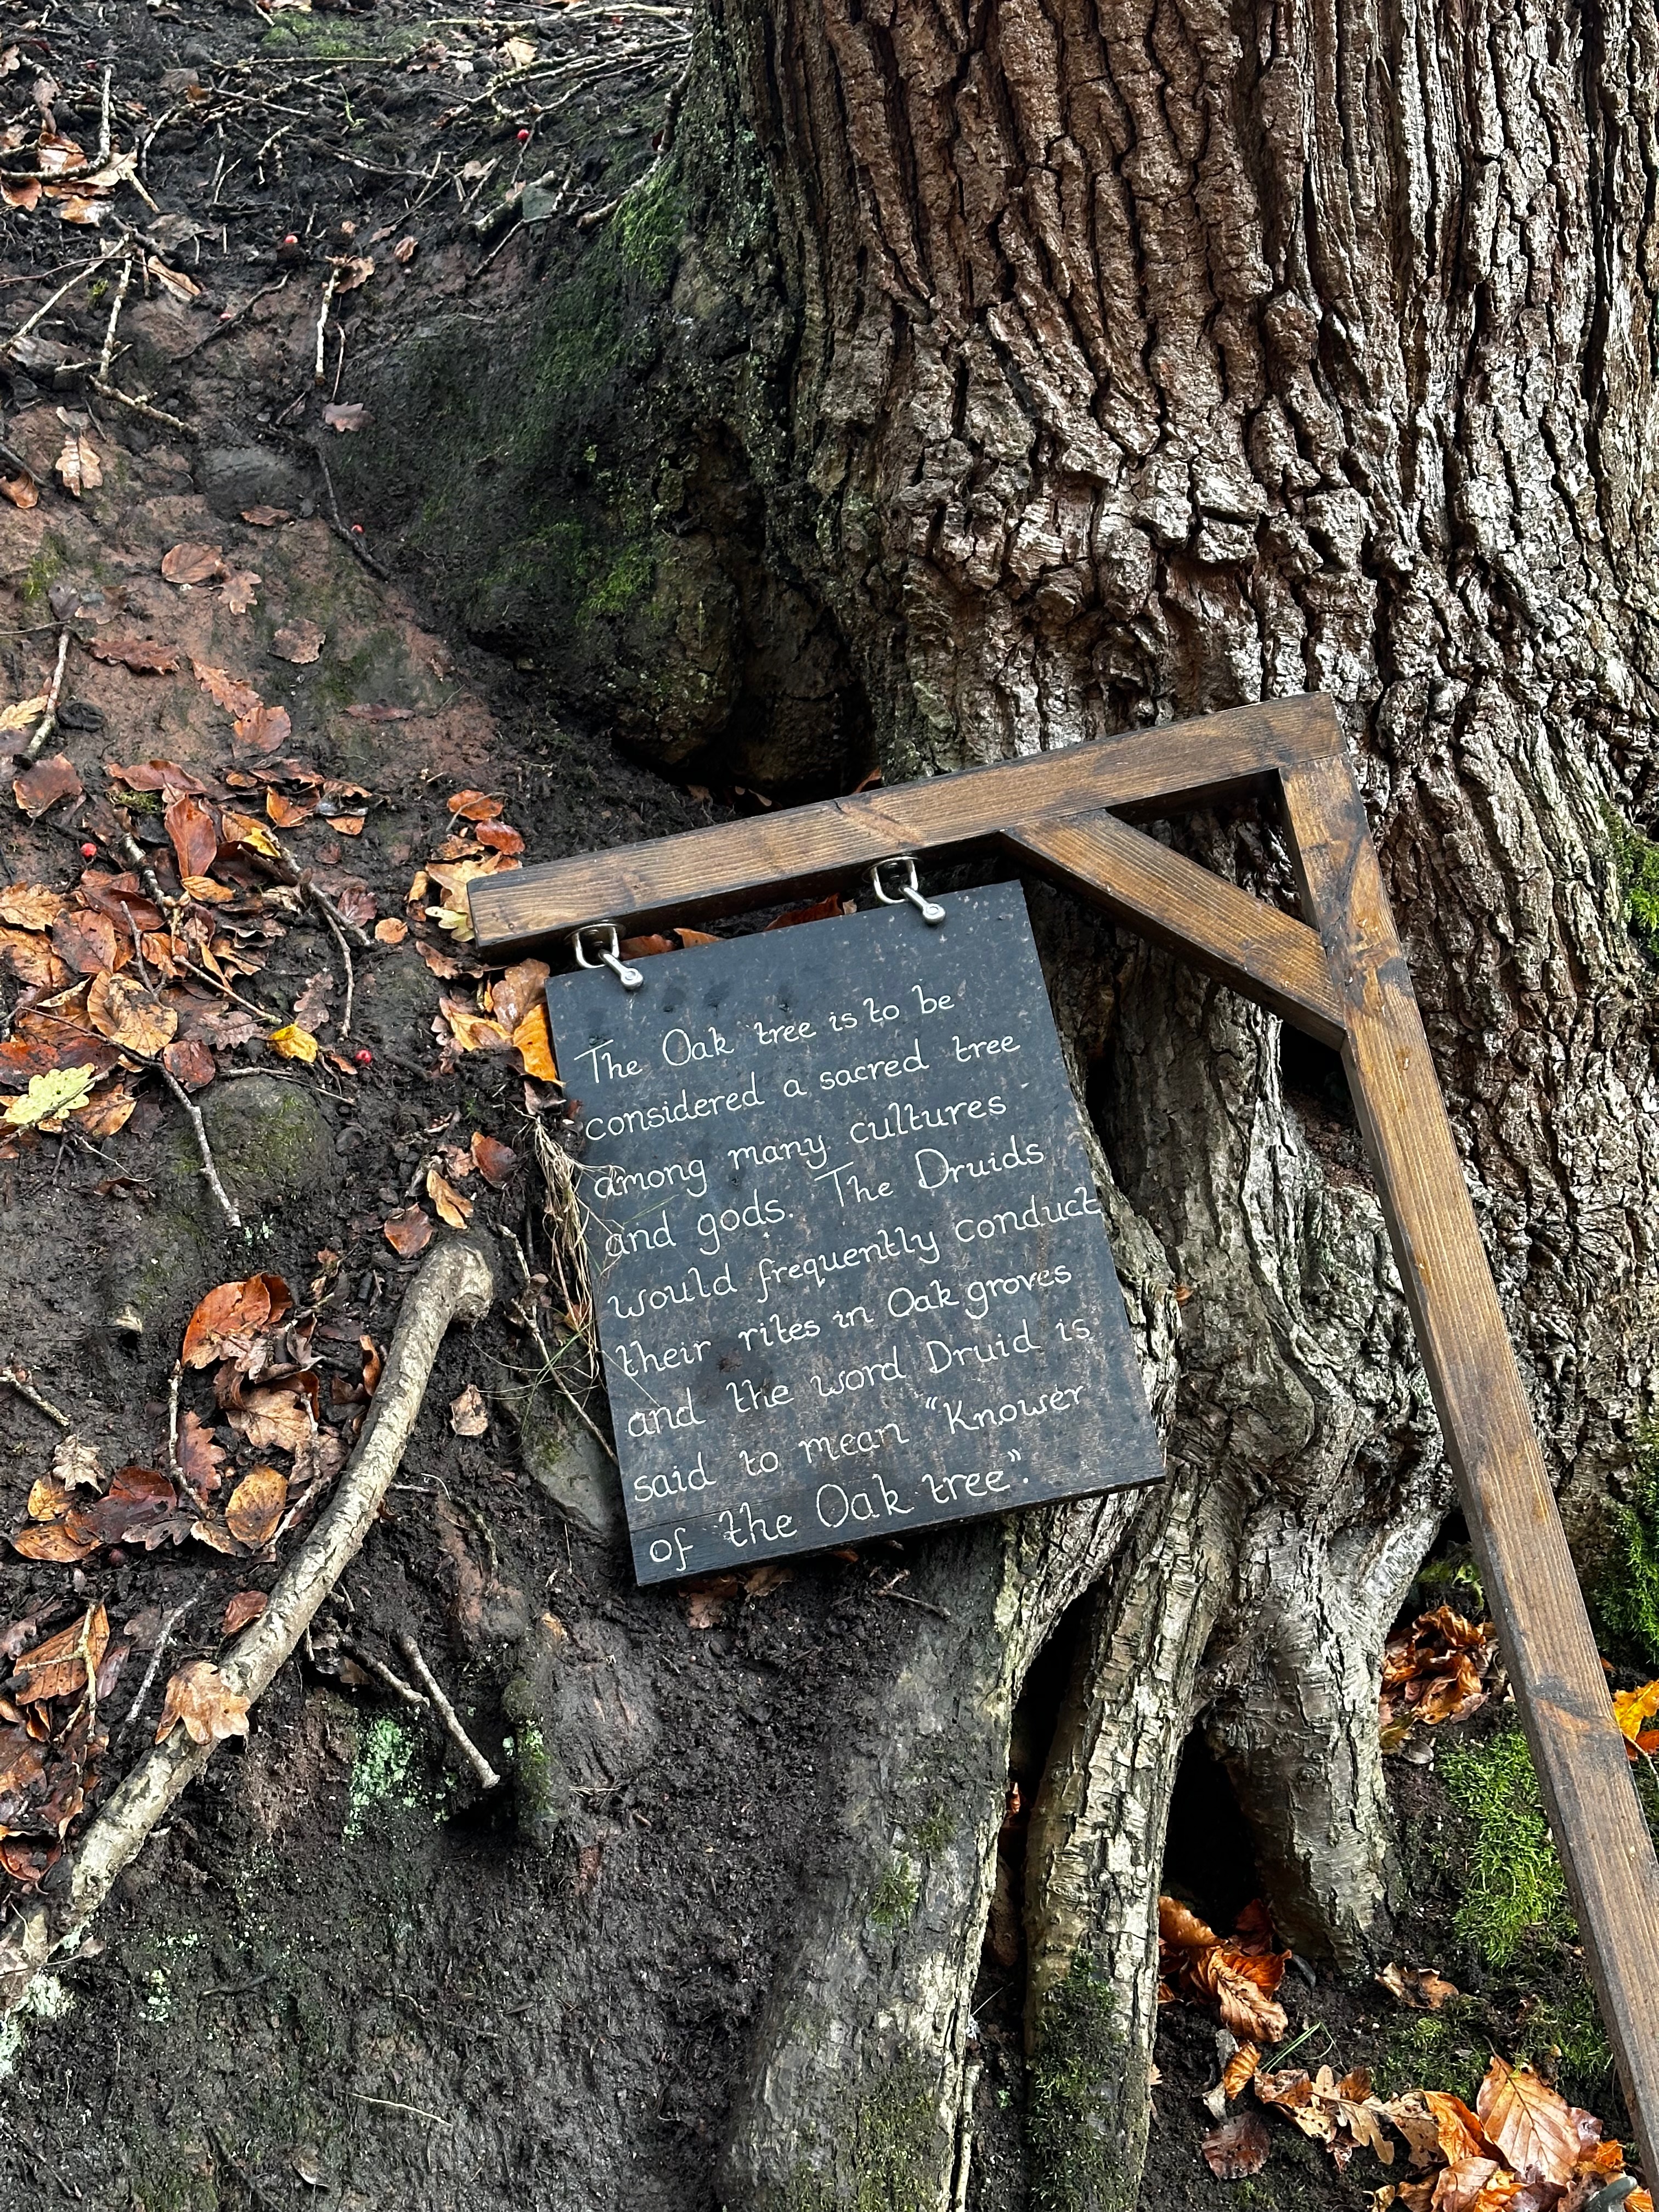 The Oak tree is to be
considered a sacred tree
among many cultures
and gods. The Druids
would frequently conduct
their rites in Oak groves
and the word Druid is
said to mean "Knower
of the Oak tree".